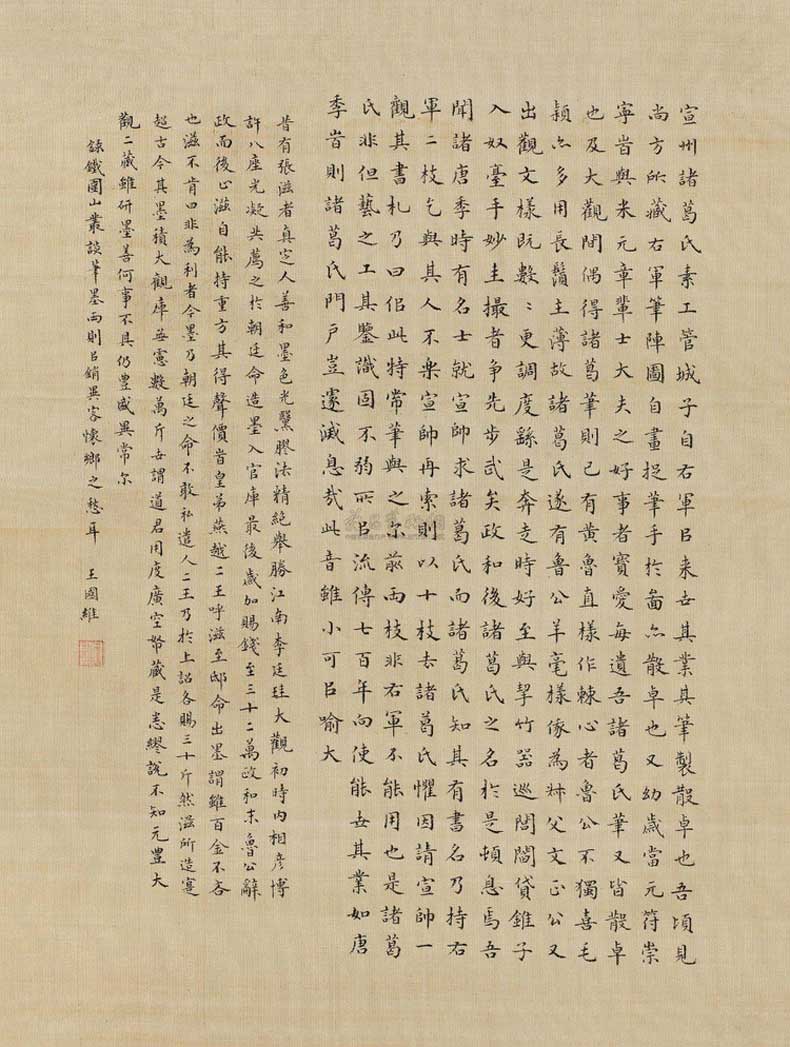 宣州諸葛氏素工管城子自右軍㠯来世其業其筆製散卓也吾頃見
尚方所藏右軍筆陣圖自畫捉筆手於圖亦散卓也又幼歲當元符崇
寧皆與米元章輩士大夫之好事者寶愛每遺吾諸葛氏筆又皆散卓
也及大觀間偶得諸葛筆則已有黃魯直樣作棘心者魯公不獨喜毛
穎亦多用長鬚主薄故諸葛氏遂有魯公羊毫樣俟為叔父文正公又
出觀文樣既數〻更調度繇是奔走時好至與挈竹器巡閭閻貸錐子
入奴臺手妙圭撮者争先步武矣政和後諸葛氏之名於是頓息焉吾
聞諸唐季時有名士就宣帥求諸葛氏而諸葛氏知其有書名乃持右
軍二枝乞與其人不樂宣帥再索則以十枝去諸葛氏懼因請宣帥一
觀其書札乃曰佀此特常筆與之尔前兩枝非右軍不能用也是諸葛
氏非但藝之工其鑒識固不弱所㠯流傳七百年向使能世其業如唐
季皆則諸葛氏門戶豈遽滅息哉此音雖小可㠯喻大
昔有張滋者真定人善和墨色光黳膠法精絶舉勝江南李廷珪大觀初時內相彥博
許八座光凝共薦之於朝廷命造墨入官庫最後歲加賜錢至三十二萬政和末魯公辭
政而後止滋自能持重方其得聲價皆皇弟燕越二王呼滋至邸命出墨謂雖百金不吝
也滋不肯曰非為利者今墨乃朝廷之命不敢私遺人二王乃於上詔各賜三十斤然滋所造寔
超古今其墨積大觀庫無慮數萬斤世謂道君用度廣空帑藏是悉繆說不知元豐大
觀二藏雖研墨善何事不具仍豐盛異常尔
錄鐵圍山叢談筆墨兩則㠯銷異客懷鄉之愁耳 王國維